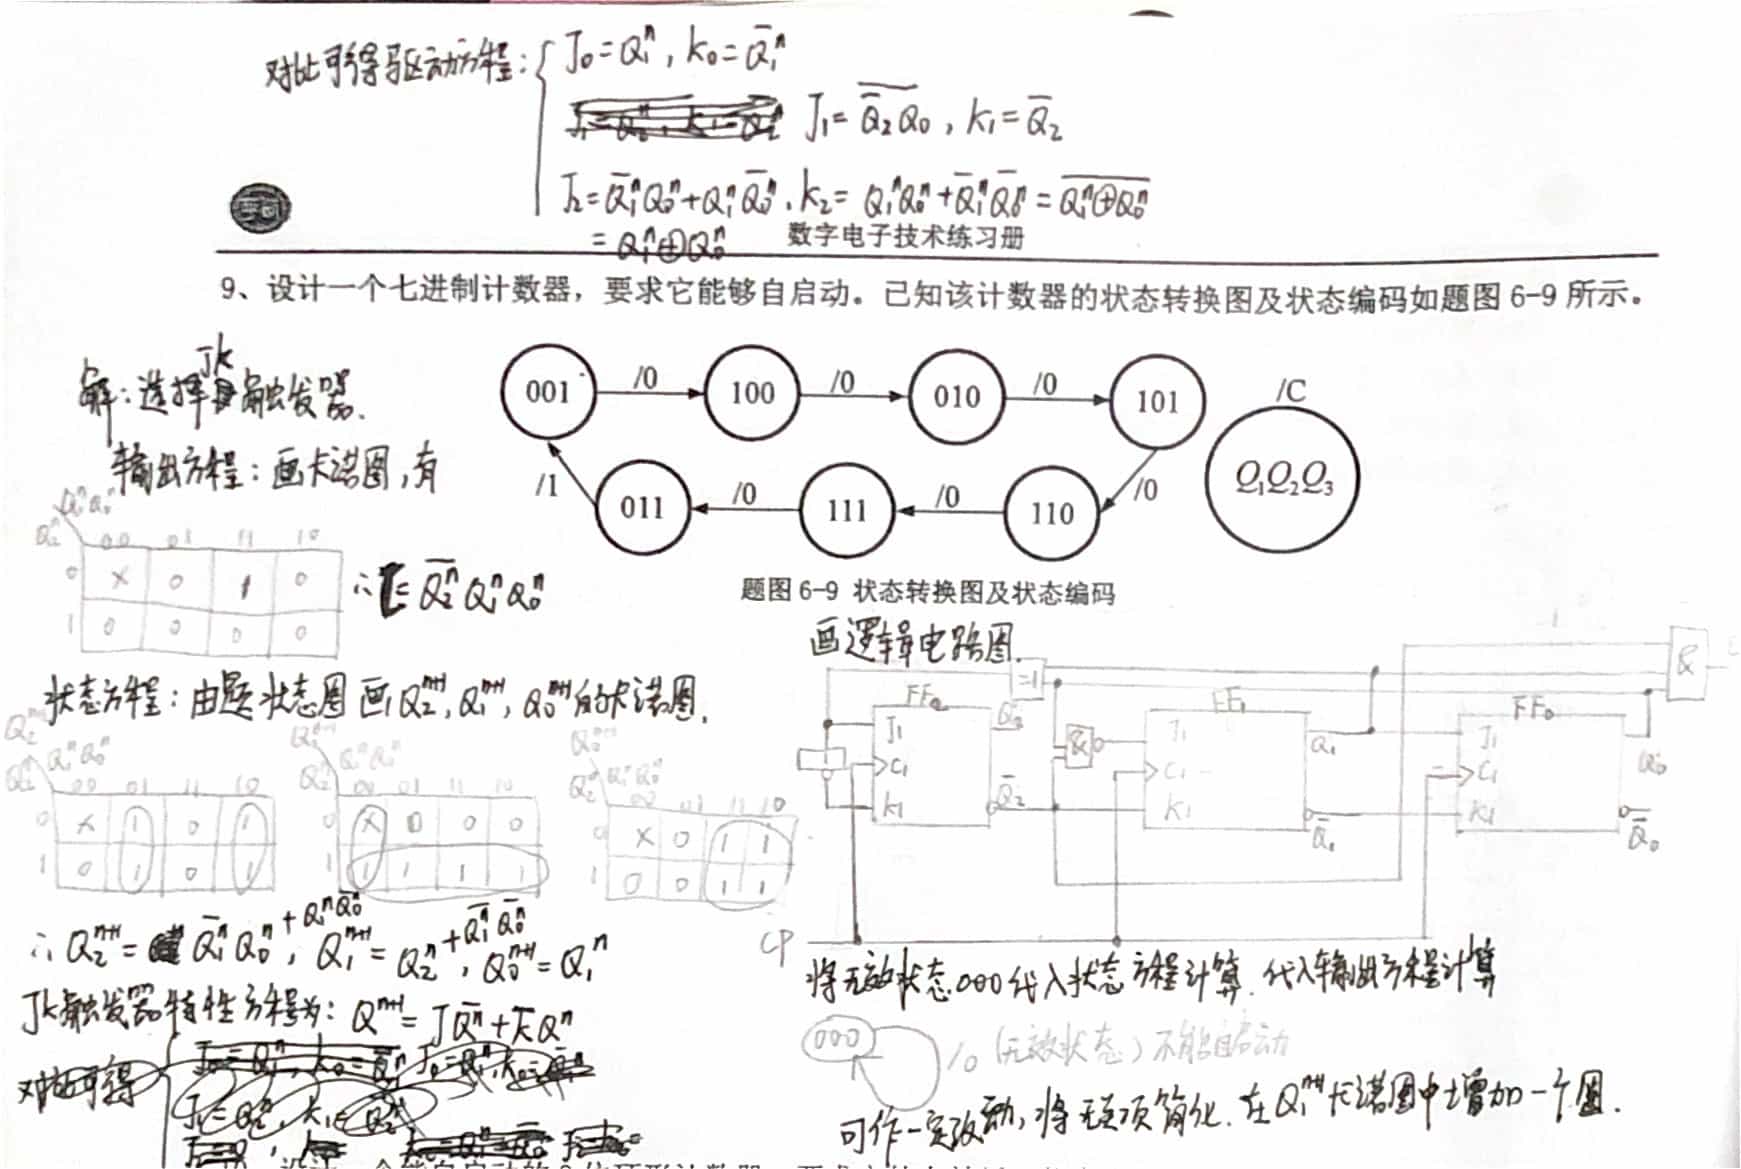 对比可得驱动方程: J₀=Q₁ⁿ, K₀=Q̅₁ⁿ
J₁=\overline{Q̅₂Q₀}, K₁=Q̅₂
J₂=Q̅₁ⁿQ₀ⁿ+Q₁ⁿQ̅₀ⁿ, K₂=Q₁ⁿQ₀ⁿ+Q̅₁ⁿQ̅₀ⁿ=\overline{Q₁ⁿ⊕Q₀ⁿ}
=Q₁ⁿ⊕Q₀ⁿ
数字电子技术练习册
9、设计一个七进制计数器，要求它能够自启动。已知该计数器的状态转换图及状态编码如题图 6-9 所示。
解:选择JK触发器.
001 /0 100 /0 010 /0 101
/C
Q₁Q₂Q₃
/1 011 /0 111 /0 110 /0
题图 6-9 状态转换图及状态编码
输出方程:画卡诺图,有
Q₁ⁿQ₀ⁿ
Q₂ⁿ 00 01 11 10
0 × 0 1 0
1 0 0 0 0
∴ = Q̅₂ⁿQ₁ⁿQ₀ⁿ
状态方程:由题状态图画Q₂ⁿ⁺¹,Q₁ⁿ⁺¹,Q₀ⁿ⁺¹的卡诺图.
Q₂ⁿ⁺¹
Q₁ⁿQ₀ⁿ
Q₂ⁿ 00 01 11 10
0 × 1 0 1
1 0 1 0 1
Q₁ⁿ⁺¹
Q₁ⁿQ₀ⁿ
Q₂ⁿ 00 01 11 10
0 × 0 0 0
1 1 1 1 1
Q₀ⁿ⁺¹
Q₁ⁿQ₀ⁿ
Q₂ⁿ 00 01 11 10
0 × 0 1 1
1 0 0 1 1
∴ Q₂ⁿ⁺¹=Q̅₁ⁿQ₀ⁿ+Q₁ⁿQ̅₀ⁿ, Q₁ⁿ⁺¹=Q₂ⁿ+Q̅₁ⁿQ̅₀ⁿ, Q₀ⁿ⁺¹=Q₁ⁿ
JK触发器特性方程为: Qⁿ⁺¹=JQ̅ⁿ+K̅Qⁿ
对比可得
画逻辑电路图.
=1 &
FF₂ FF₁ FF₀
J₁ Q₂ & J₁ Q₁ J₁ Q₀
C₁ C₁ C₁
K₁ Q̅₂ K₁ Q̅₁ K₁ Q̅₀
CP
将无效状态000代入状态方程计算.代入输出方程计算
000 /0 (无效状态) 不能自启动
可作一定改动,将无关项简化.在Q₁ⁿ⁺¹卡诺图中增加一个圈.